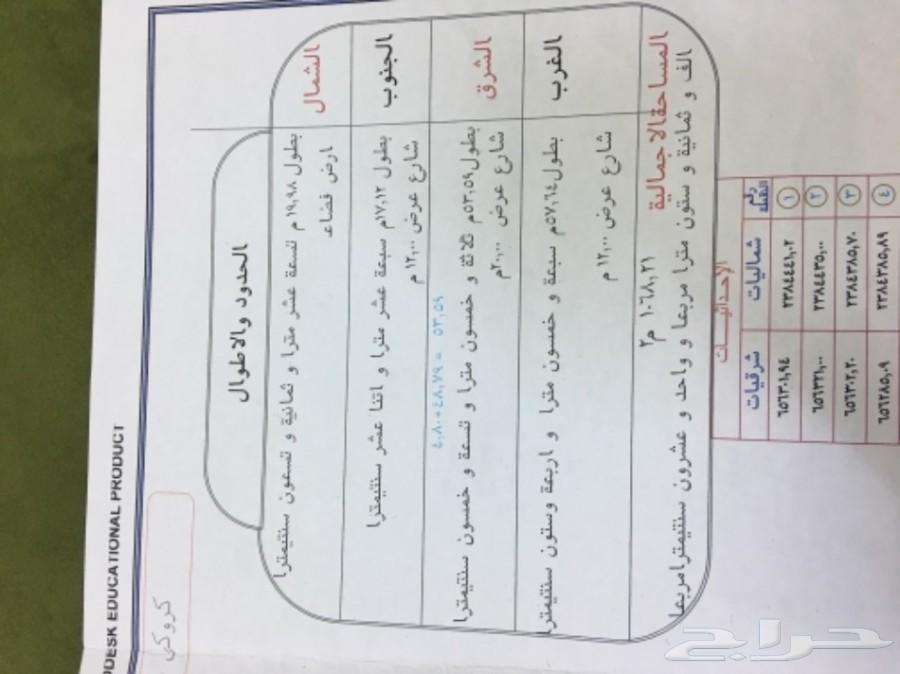 DDESK EDUCATIONAL PRODUCT
كروكي
الحدود والاطوال
الشمال
بطول ١٩,٩٨ م تسعة عشر مترا و ثمانية و تسعون سنتيمترا
ارض فضاء
الجنوب
بطول ١٧,١٢م سبعة عشر مترا و اثنا عشر سنتيمترا
شارع عرض ١٢,٠٠ م
الشرق
٤,٨٠+٤٨,٧٩ = ٥٣,٥٩
بطول ٥٣,٥٩م ثلاثة و خمسون مترا و تسعة و خمسون سنتيمترا
شارع عرض ٢٠,٠٠م
الغرب
بطول ٥٧,٦٤م سبعة و خمسون مترا و اربعة وستون سنتيمترا
شارع عرض ١٢,٠٠ م
المساحة الاجمالية ١٠٦٨,٢١ م٢
الف و ثمانية و ستون مترا مربعا و واحد و عشرون سنتيمترا مربعا
الإحداثيات
رقم النقطة شماليات شرقيات
١ ٢٣٨٤٤٤١,٠٢ ٦٥٦٣٠١,٩٤
٢ ٢٣٨٤٤٣٥,٠٠ ٦٥٦٣٢١,٠٠
٣ ٢٣٨٤٣٨٥,٧٠ ٦٥٦٣٠٢,٢٠
٤ ٢٣٨٤٣٨٥,٨٩ ٦٥٦٢٨٥,٠٩
حراج